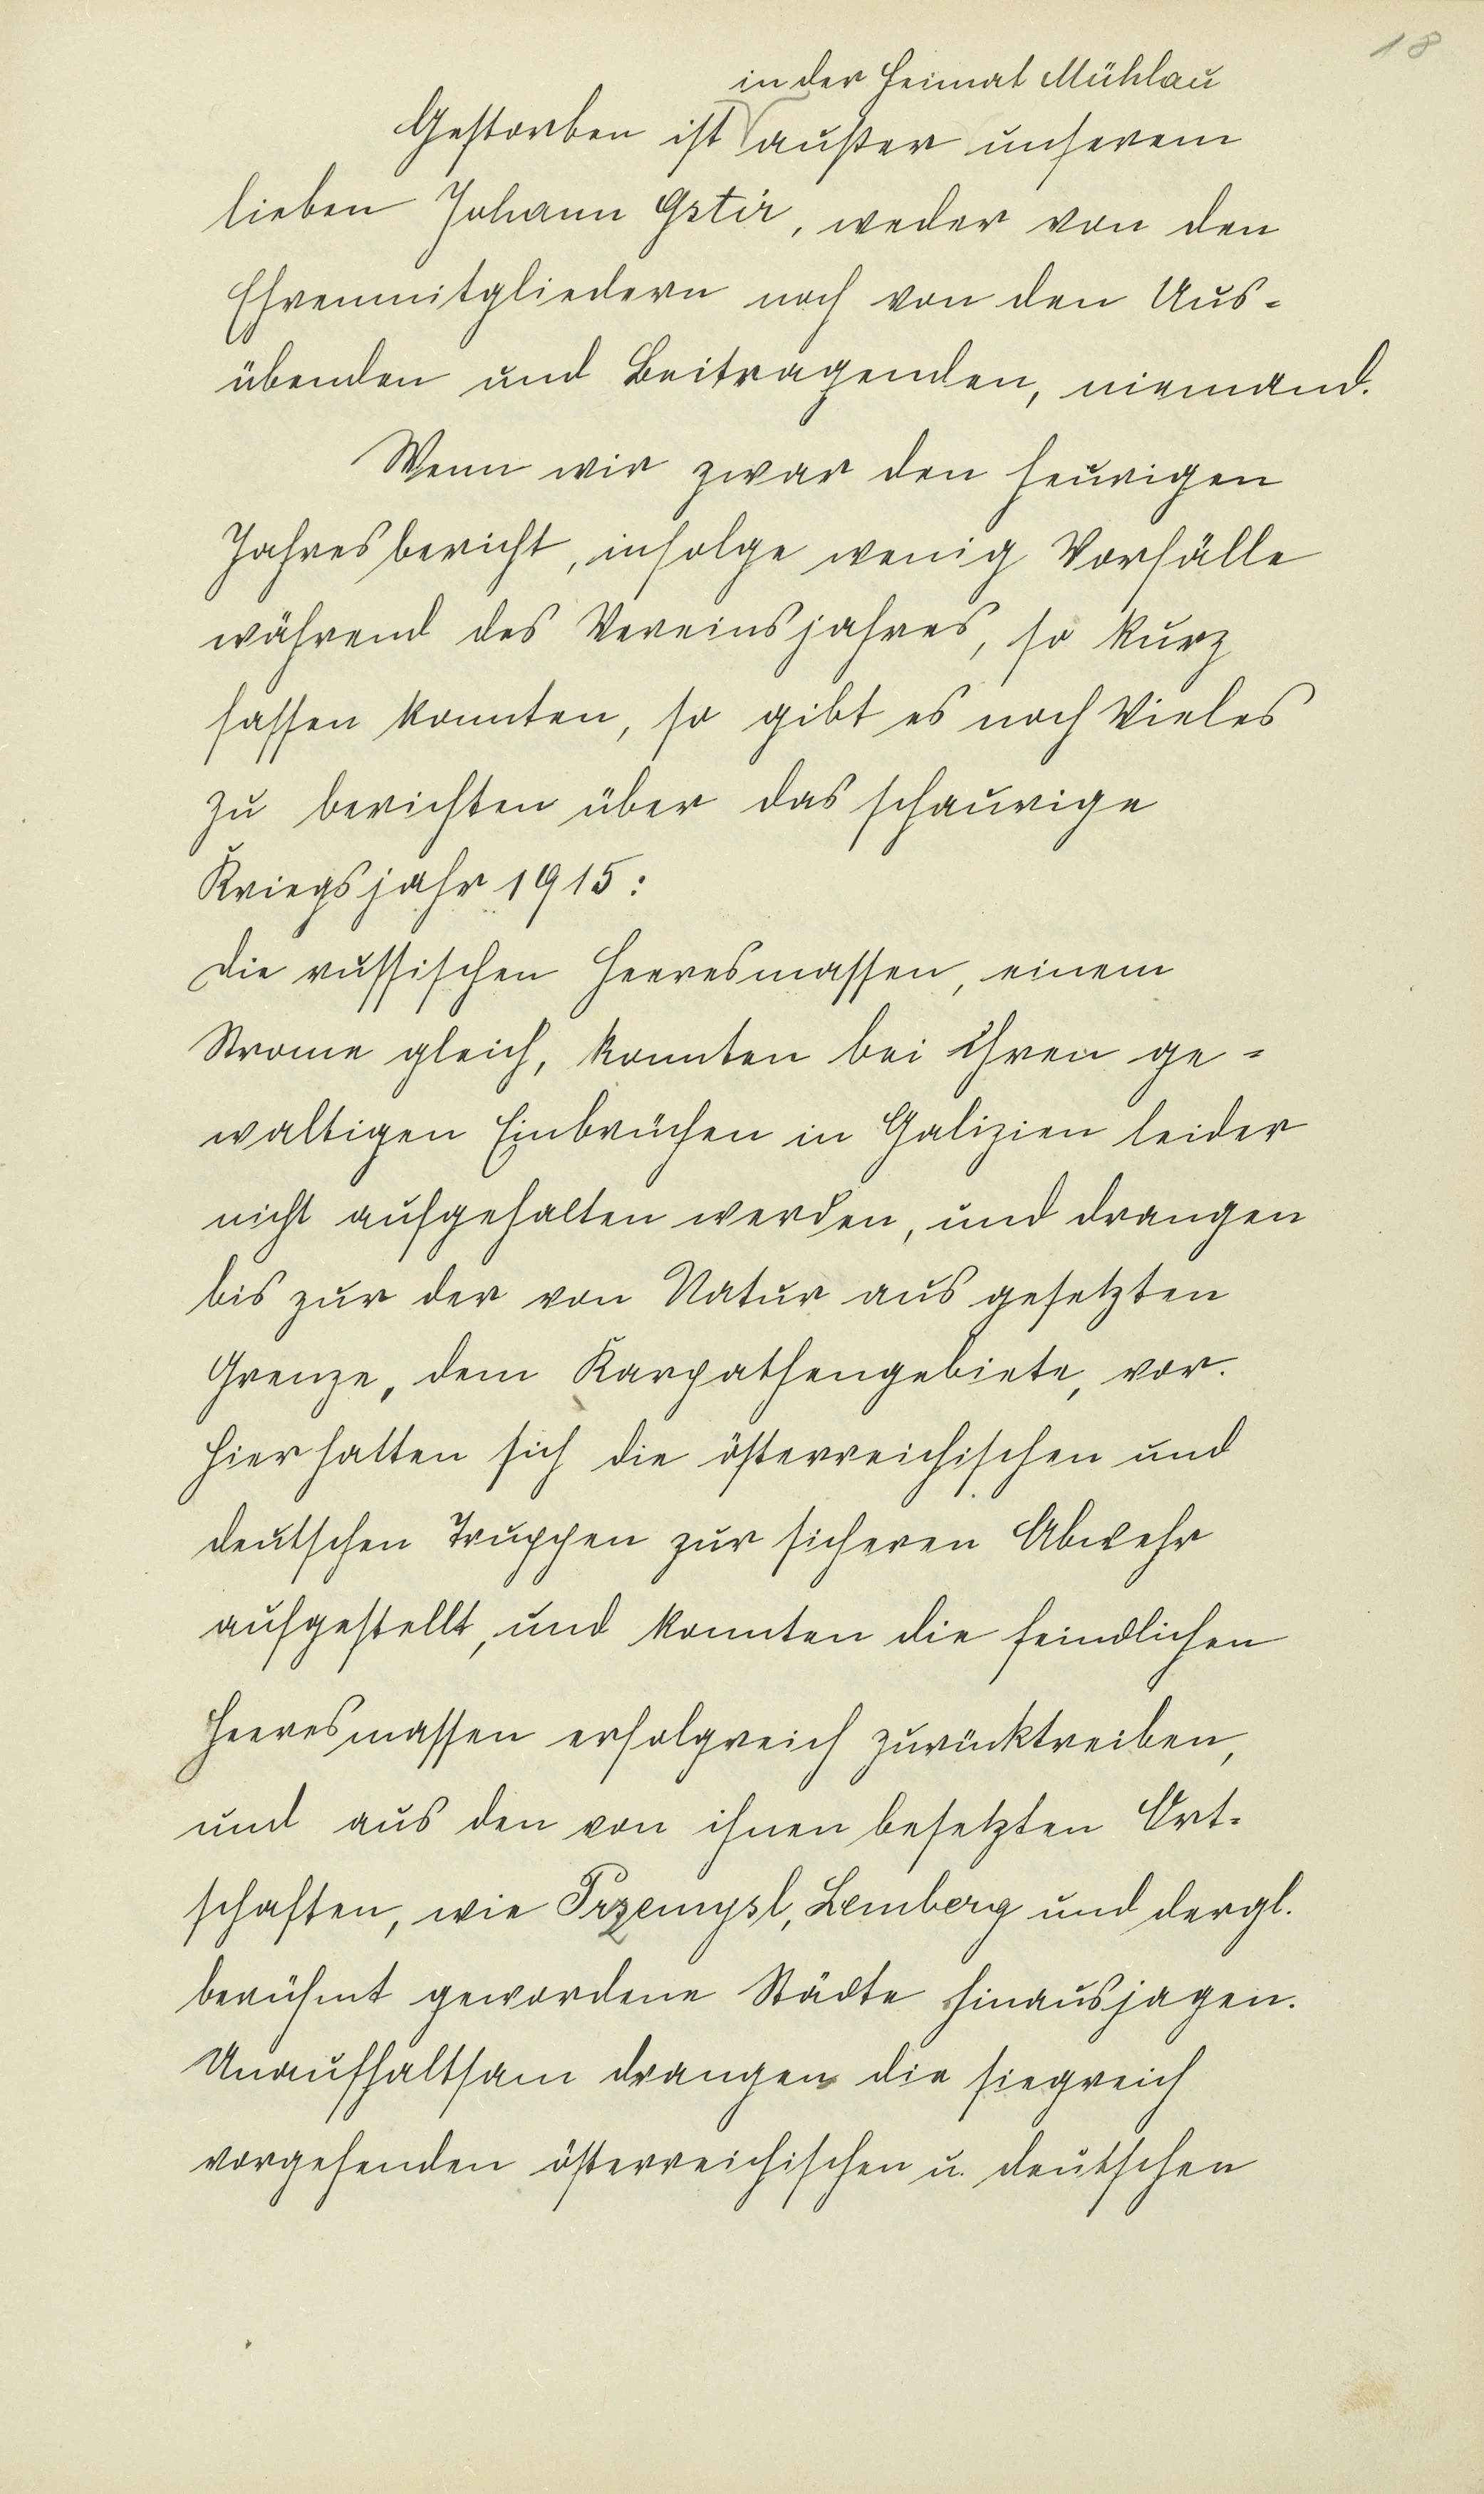 18
in der Heimat Mühlau
Gestorben ist außer unserem
lieben Johann Gstir, weder von den
Ehrenmitgliedern noch von den Aus-
übenden und Beitragenden, niemand.
Wenn wir zwar den heurigen
Jahresbericht, infolge wenig Vorfälle
während des Vereinsjahres, so kurz
fassen konnten, so gibt es noch Vieles
zu berichten über das schaurige
Kriegsjahr 1915:
Die russischen Heeresmassen, einem
Strome gleich, konnten bei ihren ge-
waltigen Einbrüchen in Galizien leider
nicht aufgehalten werden, und drangen
bis zur der von Natur aus gesetzten
Grenze, dem Karpathengebiete, vor.
Hier hatten sich die österreichischen und
deutschen Truppen zur sicheren Abwehr
aufgestellt, und konnten die feindlichen
Heeresmassen erfolgreich zurücktreiben,
und aus den von ihnen besetzten Ort-
schaften, wie Przemysl, Lemberg und dergl.
berühmt gewordene Städte hinausjagen.
Unaufhaltsam drangen die siegreich
vorgehenden österreichischen u. deutschen